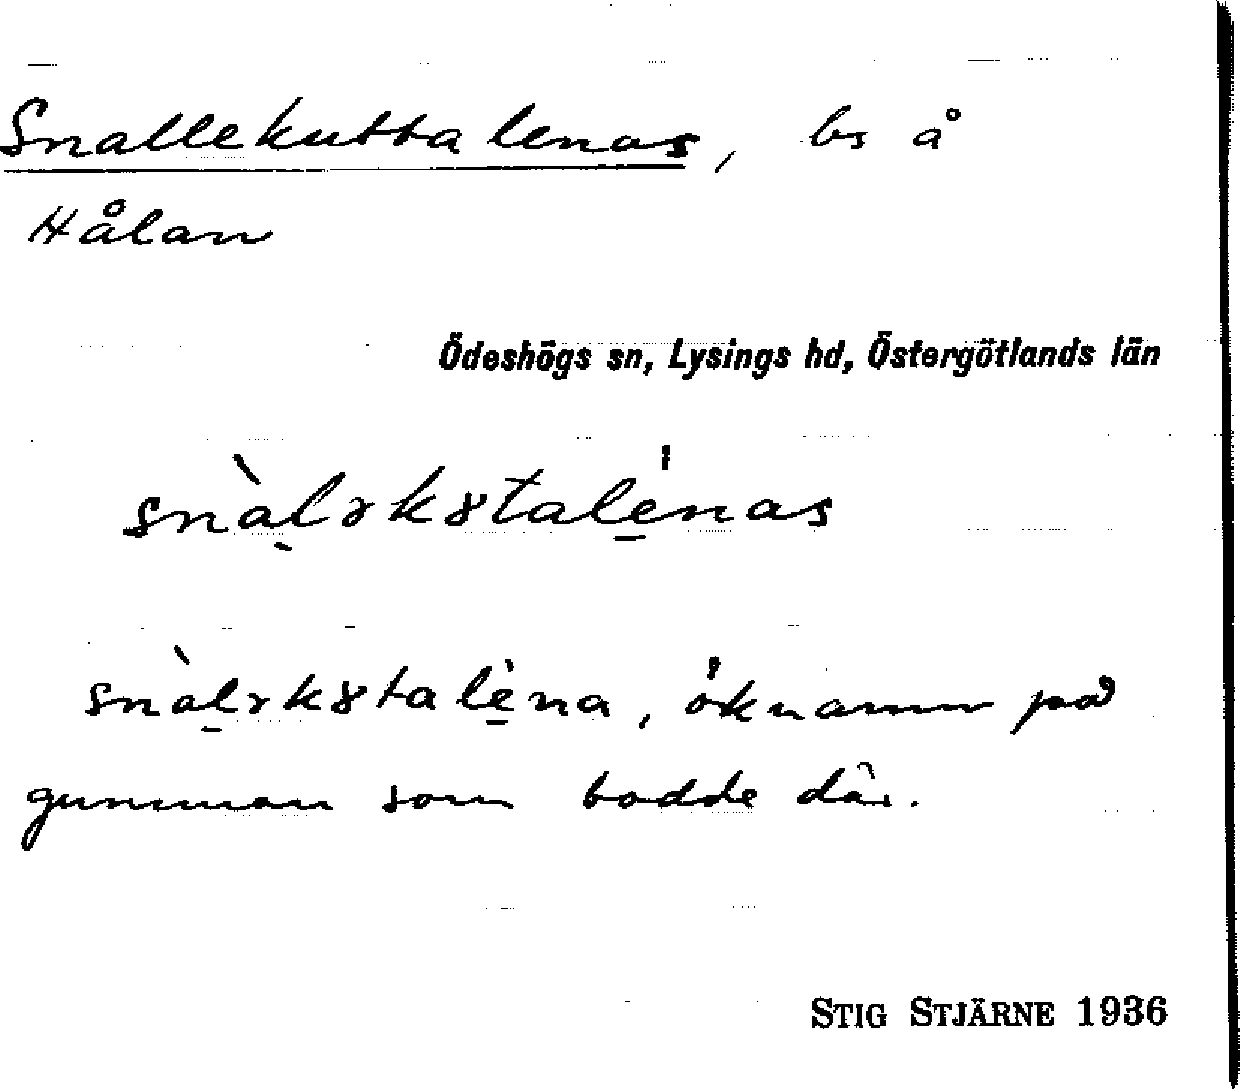 Snallekuttalenas, bs å
Hålan
Ödeshögs sn, Lysings hd, Östergötlands län
snàlɤk૪talénas
snàlɤk૪talèna, öknamn på
gumman som bodde där.
STIG STJÄRNE 1936